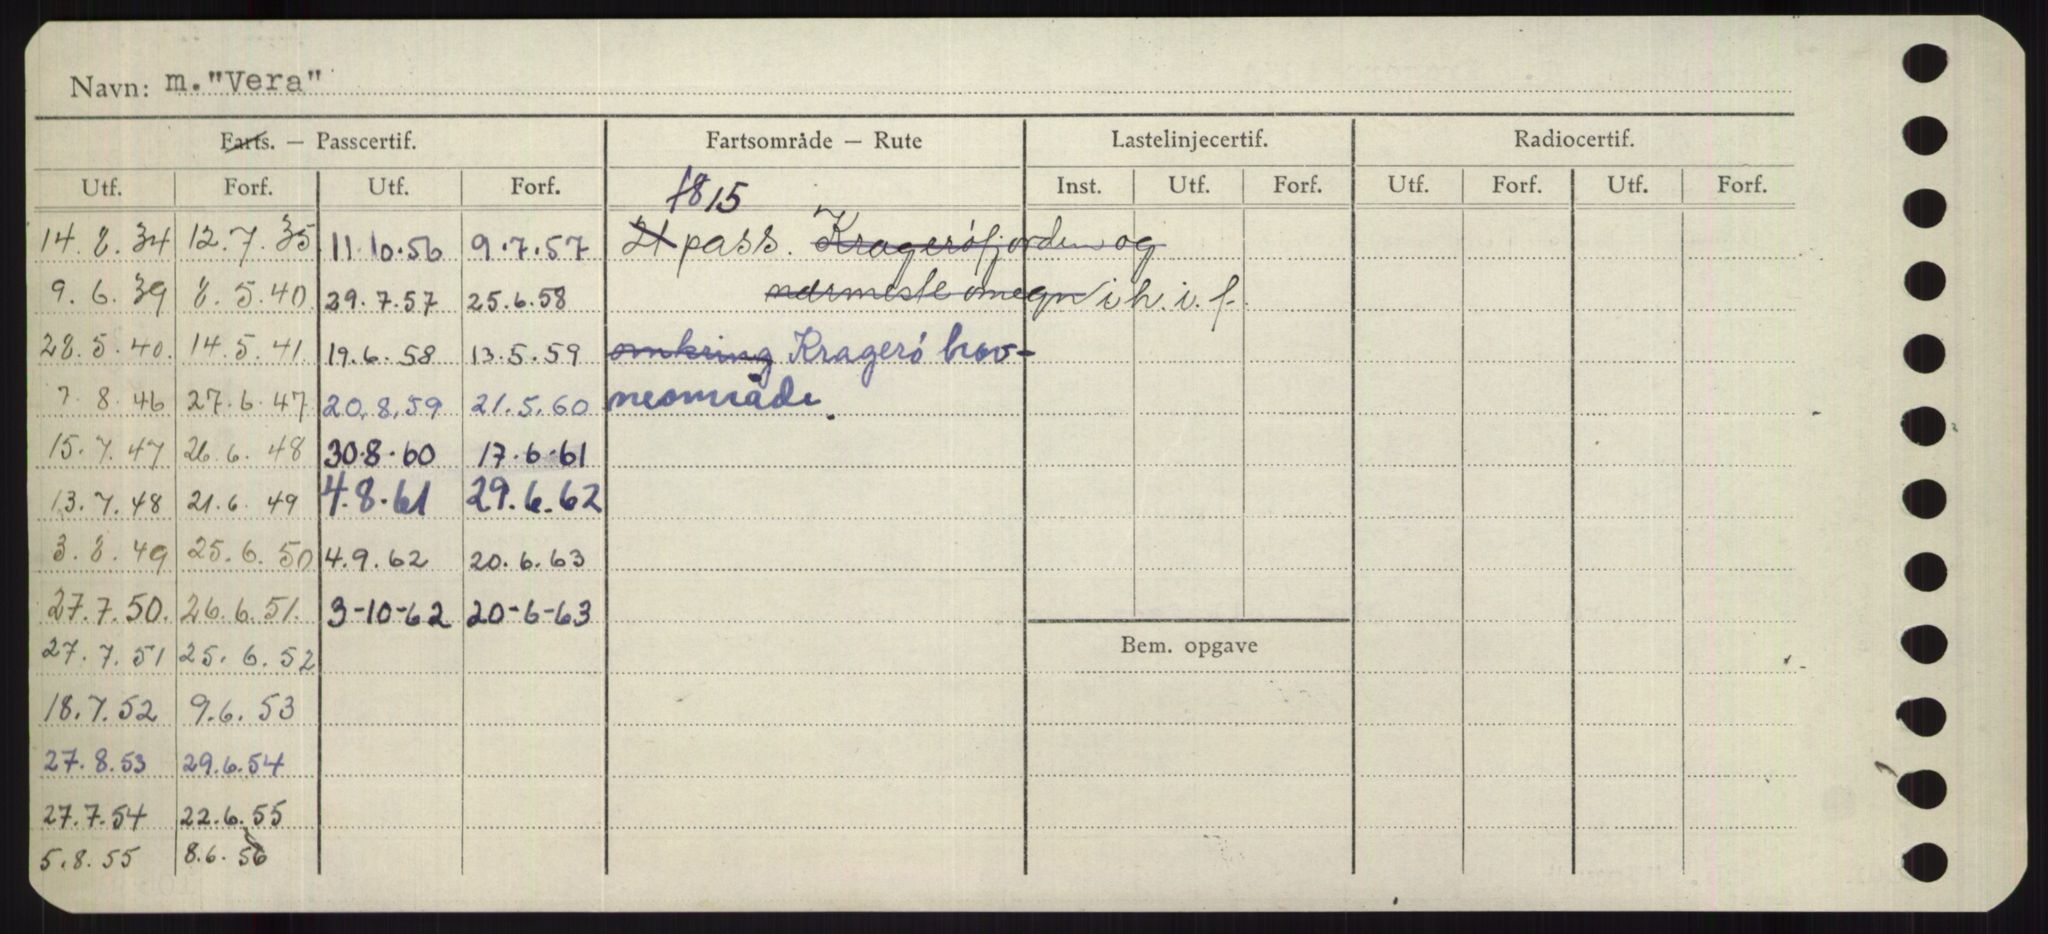 Navn: m."Vera"
Farts. — Passcertif. Fartsområde — Rute Lastelinjecertif. Radiocertif.
Utf. Forf. Utf. Forf. 18 15 Inst. Utf. Forf. Utf. Forf. Utf. Forf.
14.8.34 12.7.35 11.10.56 9.7.57 21 pass. Kragerøfjorden og
9.6.39 8.5.40 29.7.57 25.6.58 nærmeste omegn i h.i.f.
28.5.40. 14.5.41. 19.6.58 13.5.59 omkring Kragerø hav-
7.8.46 27.6.47 20.8.59 21.5.60 neområde.
15.7.47 26.6.48 30.8.60 17.6.61
13.7.48 21.6.49 4.8.61 29.6.62
3.8.49 25.6.50 4.9.62 20.6.63
27.7.50. 26.6.51. 3-10-62 20-6-63
27.7.51 25.6.52 Bem. opgave
18.7.52 9.6.53
27.8.53 29.6.54
27.7.54 22.6.55
5.8.55 8.6.56